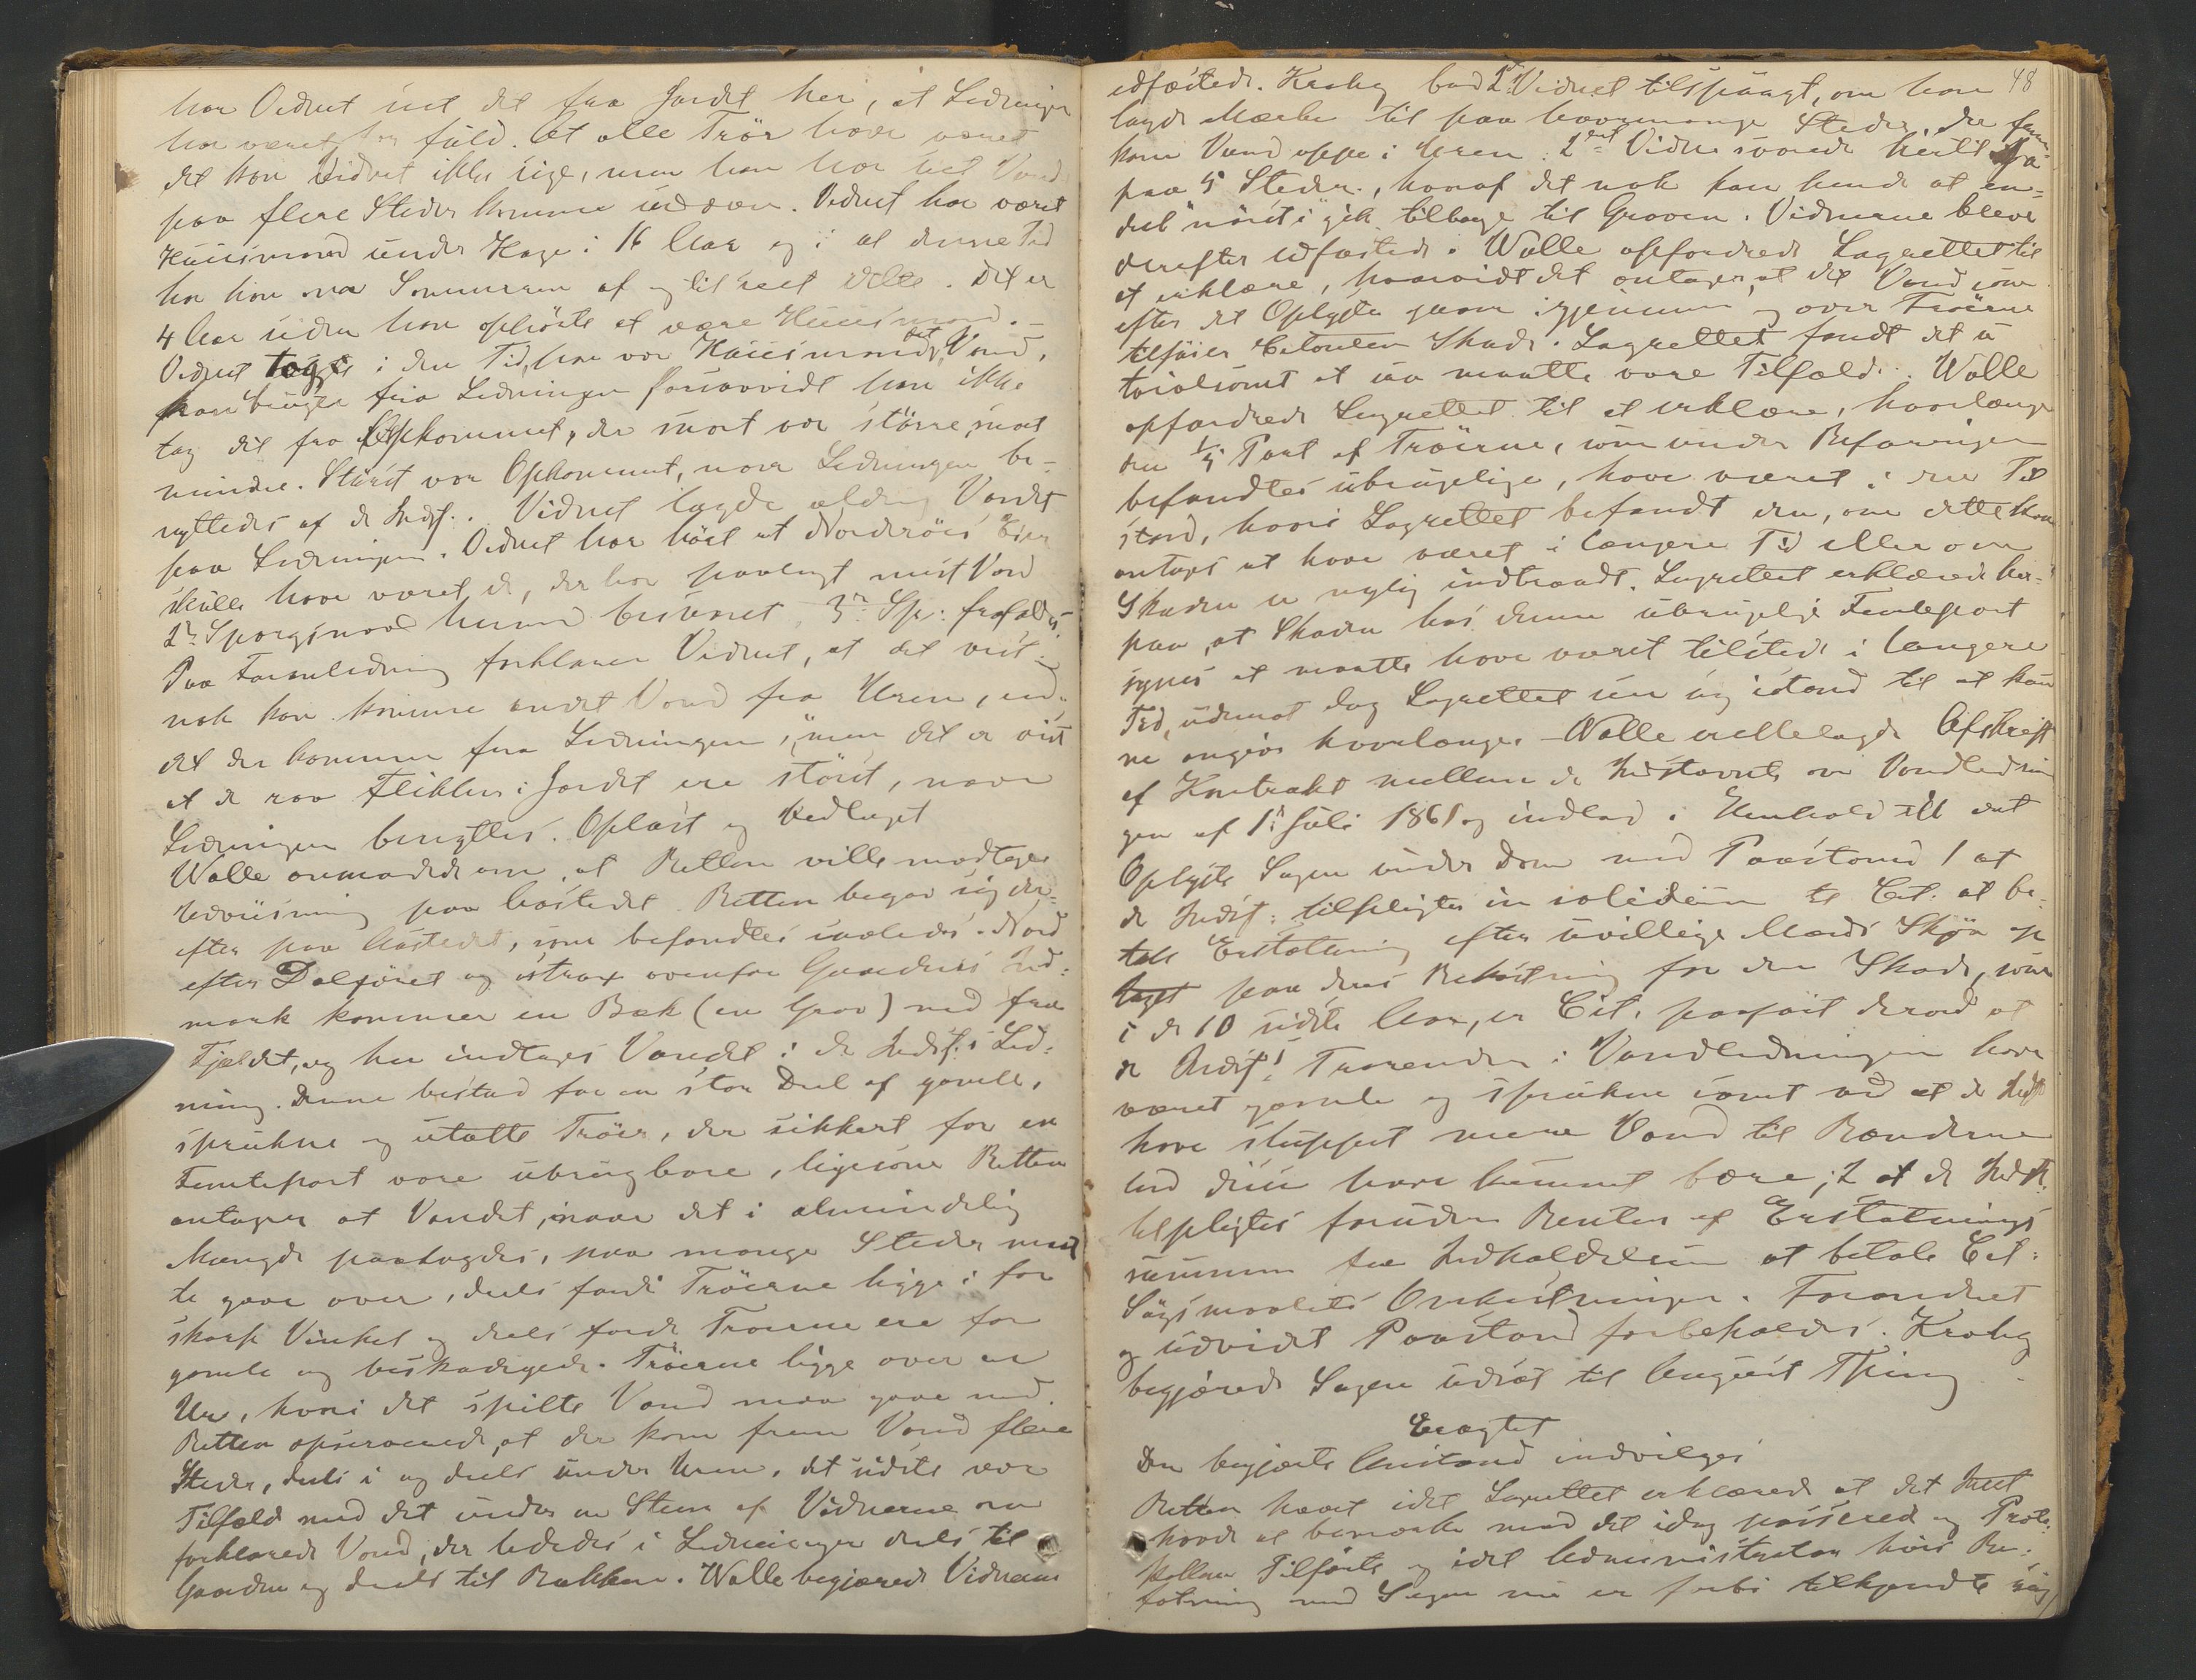 har Vidnet set det fra Jordet her, at Ledningen
har været fuld. At alle Trör have været
det kan Vidnet ikke sige, men han har seet Vand
paa flere Steder komme udover. Vidnet har været
Huusmand under Hage i 16 Aar og i al denne Tid
har han om Sommeren af og til seet dette. Det er
4 Aar siden han ophörte at være Huusmand. –
Vidnet tog i den Tid, han var Huusmand det Vand,
han brugte fra Ledningen forsaavidt han ikke
tog det fra Opkommet, der snart var större snart
mindre. Störst var Opkommet, naar Ledningen be-
nyttedes af de Indst:. Vidnet lagde aldrig Vandet
paa Ledningen. Vidnet har hört at Norderöis Eier
skulle have været de, der har paalagt mest Vand
2det Spörgsmaal hermed besvaret, 3die Sp: frafaldes.
Paa Foranledning forklarer Vidnet, at det vist-
nok kan komme andet Vand fra Uren, end
det der kommer fra Ledningen, men det er vist
at de raa Flekker i Jordet ere störst, naar
Ledningen benyttes. Oplæst og Vedtaget
Walle anmodede om, at Retten ville modtage
Udviisning paa Aastedet. Retten begav sig der-
efter paa Aastedet, som befandtes saaledes: Nord
efter Dalföret og strax ovenfor Gaardens Ind-
mark kommer en Bæk (en Grov) ned fra
Fjeldet, og her indtages Vandet i de Indst:s Led-
ning. Denne bestod for en stor Deel af gamle,
sprukne og utætte Tröer, der sikkert for en
Femtepart vare ubrugbare, ligesom Retten
antager at Vandet, naar det i almindelig
Mængde paatages, paa mange Steder maat
te gaae over, deels fordi Tröerne ligge i for
skarp Vinkel og deels fordi Tröerne ere for
gamle og beskadigede. Tröerne ligge over en
Ur, hvori det spilte Vand maa gaae ned.
Retten observerede, at der kom frem Vand flere
Steder, deels i og deels under Uren, det sidste var
Tilfælde med det under en Steen af Vidnerne om
forklarede Vand, der lededes i Ledninger deels til
Gaarden og deels til Bækken. Walle begjærede Vidnerne
48
edfæstede. Krohg bad 2det Vidnet tilspurgt, om han
lagde Mærke til paa hvormange Steder, der frem
kom Vand oppe i Uren. 2det Vidne svarede hertil Ja
paa 5 Steder, hvoraf det nok kan hende at en-
deel "næst i" gik tilbage til Groven. Vidnerne bleve
derefter edfæstede. Walle opfordrede Lagrettet til
at erklære, hvorvidt det antager, at det Vand som
efter det Oplyste gaaer igjennem og over Tröerne
tilföier Citanten Skade. Lagrettet fandt det u
tvivlsomt at saa maatte være Tilfælde. Walle
opfordrede Lagrettet til at erklære, hvorlænge
den 1/5 Part af Tröerne, som under Befaringen
befandtes ubrugelige, have været i den Til
stand, hvori Lagrettet befandt den, om dette kan
antages at have været i længere Tid eller om
Skaden er nylig indtraadt. Lagrettet erklærede her-
paa, at Skaden hos denne ubrugelige Femtepart
synes at maatte have været tilstede i længere
Tid, uden at dog Lagrettet saa sig istand til at kun
ne angive hvorlænge. – Walle irettelagde Afskrift
af Kontrakt mellem de Indstævnte om Vandlednin
gen af 1ste Juli 1861 og indlod i Henhold til det
Oplyste Sagen under Dom med Paastand 1 at
de Indst: tilpligtes in solidum til Cit. at be-
tale Erstatning efter uvillige Mænds Skjön op
taget paa deres Bekostning for den Skade, som
i de 10 sidste Aar, er Cit. paafört derved at
de Indst:s Trærender i Vandledningen have
været gamle og sprukne samt ved at de Indst
have sluppet mere Vand til Rænderne
end disse have kunnet bære; 2 at de Indst.
tilpligtes foruden Renter af Erstatnings
summen fra Indkaldelsen at betale Cit:
Sögsmaalets Omkostninger. Forandret
og udvidet Paastand forbeholdes. Krohg
begjærede Sagen udsat til August Thing
Eragtet
Den begjærte Anstand indvilges
Retten hævet idet Lagrettet erklærede at det Intet
havde at bemærke med det idag passered og Proto-
kollen Tilförte og idet Administrator hvis Be-
fatning med Sagen nu er forbi tilkjendte sig